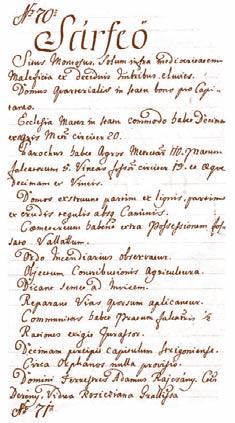 Nro 70mo
Sárfeö
Situs Montosus, Solum infra mediocritatem
Maleficia ex decidius imbribus eluvies.
Domus Quarterialis in statu bono pro Capi-
taneo.
Ecclesia Mater in statu commodo habet Decimam
circiter 20.
Parochus habet Agros Metretar 110. Pratum
falcatorum 5. Vineas fossorum circiter 19. ex aeque
decimam ex Vineis.
Domos extruunt partim ex lignis, partim
ex crudis tegulis absq Caminis.
Coemeterium habent extra Possessionem fos-
sato Vallatum.
Ordo Incendiarius observatur.
Objectum Contributionis Agricultura.
Dicant semet ad Invicem.
Reparant Vias quorsum applicantur.
Communitas habet Pratum falcatoris ½
Rationes exigit Jurassor.
Decimam percipit Capitulum Strigoniense.
Circa Orphanos nulla provisio.
Domini Terrestres Adamus Rajcsány, Com
Deröny, Vidua
Nro 71mo